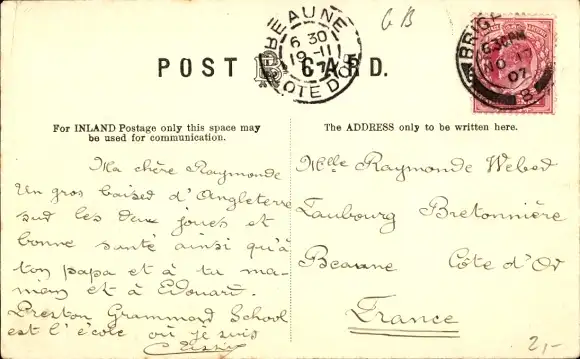 G B
BEAUNE
6 30
19 - 11
07
COTE D'OR
BRIG
6 30 PM
NO 17
07
8
POST CARD.
For INLAND Postage only this space may
be used for communication.
The ADDRESS only to be written here.
Ma chère Raymonde
Un gros baised d'Angleterre
sud les deux joues et
bonne santé ainsi qu'à
ton papa et à ta ma-
man et à Edouard.
Preston Grammard School
est l'école où je suis
Mlle Raymonde Weber
Faubourg Bretonnière
Beaune Côte d'Or
France
2,-